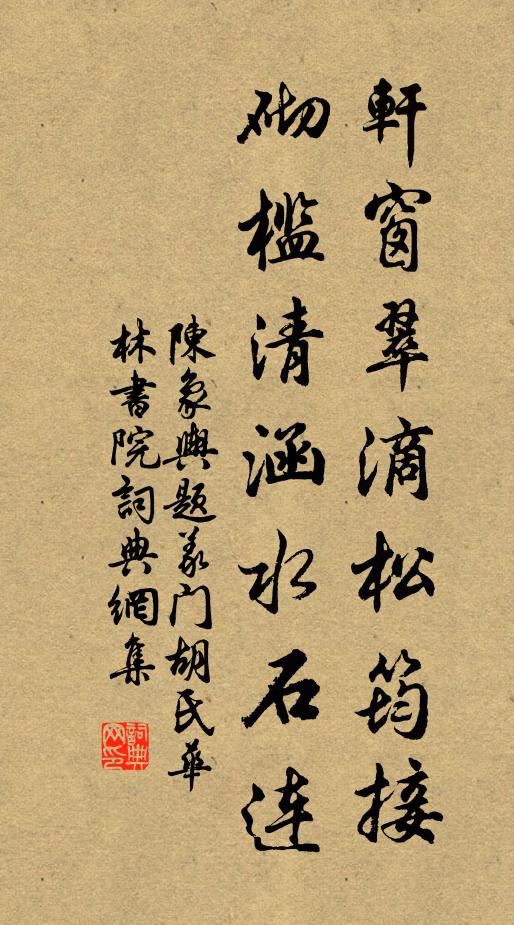 軒窗翠滴松筠接
砌檻清涵水石連
陳象輿題義门胡氏華
林書院詞典網集
詞典网印